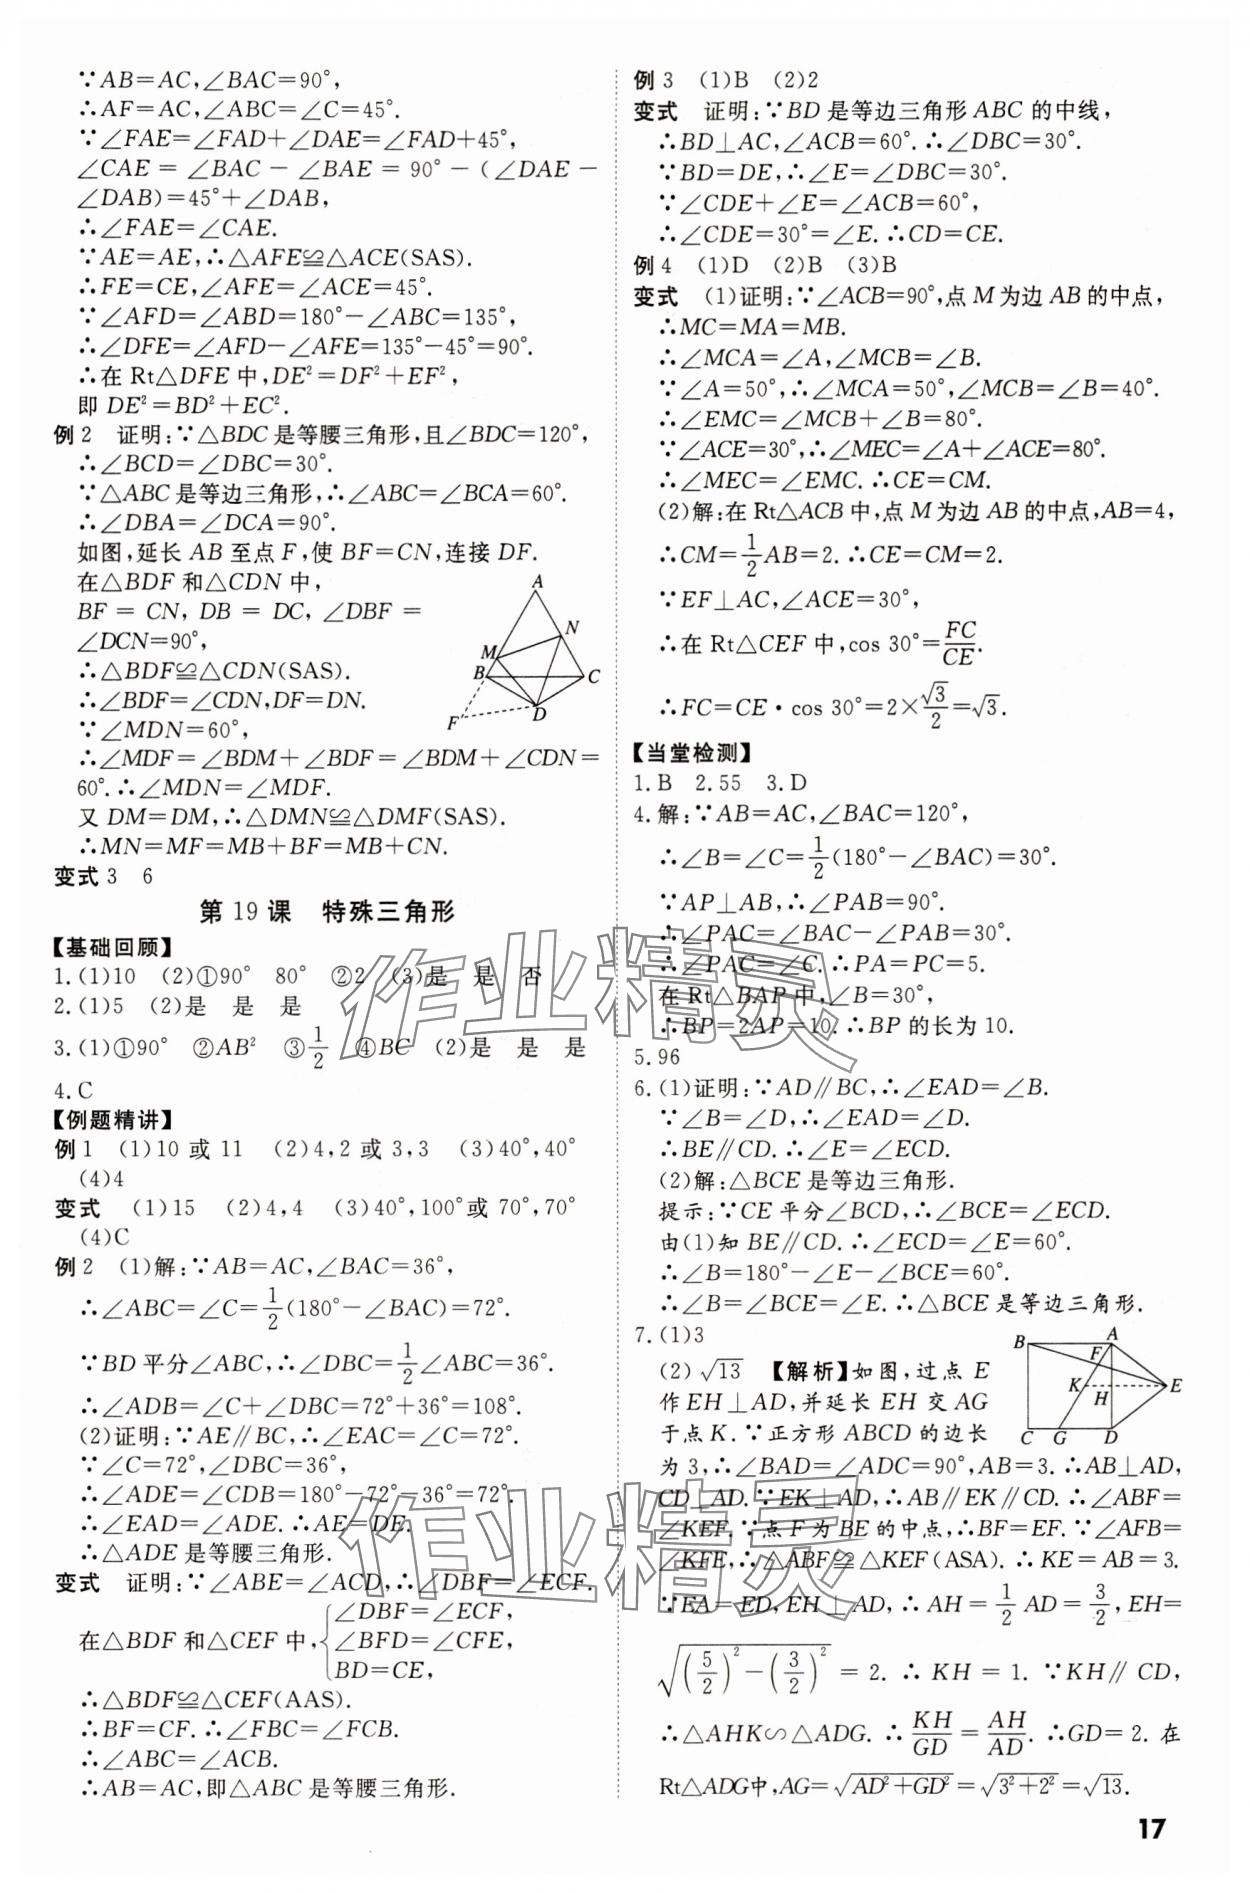 ∵AB=AC,∠BAC=90°,
∴AF=AC,∠ABC=∠C=45°.
∵∠FAE=∠FAD+∠DAE=∠FAD+45°,
∠CAE=∠BAC-∠BAE=90°-(∠DAE-
∠DAB)=45°+∠DAB,
∴∠FAE=∠CAE.
∵AE=AE,∴△AFE≌△ACE(SAS).
∴FE=CE,∠AFE=∠ACE=45°.
∵∠AFD=∠ABD=180°-∠ABC=135°,
∴∠DFE=∠AFD-∠AFE=135°-45°=90°.
∴在Rt△DFE中,DE²=DF²+EF²,
即DE²=BD²+EC².
例2 证明:∵△BDC是等腰三角形,且∠BDC=120°,
∴∠BCD=∠DBC=30°.
∵△ABC是等边三角形,∴∠ABC=∠BCA=60°.
∴∠DBA=∠DCA=90°.
如图,延长AB至点F,使BF=CN,连接DF.
在△BDF和△CDN中,
BF=CN,DB=DC,∠DBF=
∠DCN=90°,
∴△BDF≌△CDN(SAS).
∴∠BDF=∠CDN,DF=DN.
∵∠MDN=60°,
∴∠MDF=∠BDM+∠BDF=∠BDM+∠CDN=
60°.∴∠MDN=∠MDF.
又DM=DM,∴△DMN≌△DMF(SAS).
∴MN=MF=MB+BF=MB+CN.
A
N
M
B
C
F
D
变式3 6
第19课 特殊三角形
【基础回顾】
1.(1)10 (2)①90° 80° ②2 (3)是 是 否
2.(1)5 (2)是 是 是
3.(1)①90° ②AB² ③1/2 ④BC (2)是 是 是
4.C
【例题精讲】
例1 (1)10或11 (2)4,2或3,3 (3)40°,40°
(4)4
变式 (1)15 (2)4,4 (3)40°,100°或70°,70°
(4)C
例2 (1)解:∵AB=AC,∠BAC=36°,
∴∠ABC=∠C=1/2(180°-∠BAC)=72°.
∵BD平分∠ABC,∴∠DBC=1/2∠ABC=36°.
∴∠ADB=∠C+∠DBC=72°+36°=108°.
(2)证明:∵AE∥BC,∴∠EAC=∠C=72°.
∵∠C=72°,∠DBC=36°,
∴∠ADE=∠CDB=180°-72°-36°=72°.
∴∠EAD=∠ADE.∴AE=DE.
∴△ADE是等腰三角形.
变式 证明:∵∠ABE=∠ACD,∴∠DBF=∠ECF.
在△BDF和△CEF中,{∠DBF=∠ECF,
∠BFD=∠CFE,
BD=CE,
∴△BDF≌△CEF(AAS).
∴BF=CF.∴∠FBC=∠FCB.
∴∠ABC=∠ACB.
∴AB=AC,即△ABC是等腰三角形.
例3 (1)B (2)2
变式 证明:∵BD是等边三角形ABC的中线,
∴BD⊥AC,∠ACB=60°.∴∠DBC=30°.
∵BD=DE,∴∠E=∠DBC=30°.
∵∠CDE+∠E=∠ACB=60°,
∴∠CDE=30°=∠E.∴CD=CE.
例4 (1)D (2)B (3)B
变式 (1)证明:∵∠ACB=90°,点M为边AB的中点,
∴MC=MA=MB.
∴∠MCA=∠A,∠MCB=∠B.
∵∠A=50°,∴∠MCA=50°,∠MCB=∠B=40°.
∴∠EMC=∠MCB+∠B=80°.
∵∠ACE=30°,∴∠MEC=∠A+∠ACE=80°.
∴∠MEC=∠EMC.∴CE=CM.
(2)解:在Rt△ACB中,点M为边AB的中点,AB=4,
∴CM=1/2AB=2.∴CE=CM=2.
∵EF⊥AC,∠ACE=30°,
∴在Rt△CEF中,cos 30°=FC/CE.
∴FC=CE·cos 30°=2×√3/2=√3.
【当堂检测】
1.B 2.55 3.D
4.解:∵AB=AC,∠BAC=120°,
∴∠B=∠C=1/2(180°-∠BAC)=30°.
∵AP⊥AB,∴∠PAB=90°.
∴∠PAC=∠BAC-∠PAB=30°.
∴∠PAC=∠C.∴PA=PC=5.
在Rt△BAP中,∠B=30°,
∴BP=2AP=10.∴BP的长为10.
5.96
6.(1)证明:∵AD∥BC,∴∠EAD=∠B.
∵∠B=∠D,∴∠EAD=∠D.
∴BE∥CD.∴∠E=∠ECD.
(2)解:△BCE是等边三角形.
提示:∵CE平分∠BCD,∴∠BCE=∠ECD.
由(1)知BE∥CD.∴∠ECD=∠E=60°.
∴∠B=180°-∠E-∠BCE=60°.
∴∠B=∠BCE=∠E.∴△BCE是等边三角形.
7.(1)3
(2)√13 【解析】如图,过点E
作EH⊥AD,并延长EH交AG
于点K.∵正方形ABCD的边长
B
A
F
K
H
E
C G D
为3,∴∠BAD=∠ADC=90°,AB=3.∴AB⊥AD,
CD⊥AD.∵EK⊥AD,∴AB∥EK∥CD.∴∠ABF=
∠KEF.∵点F为BE的中点,∴BF=EF.∵∠AFB=
∠KFE,∴△ABF≌△KEF(ASA).∴KE=AB=3.
∵EA=ED,EH⊥AD,∴AH=1/2 AD=3/2,EH=
√((5/2)²-(3/2)²)=2.∴KH=1.∵KH∥CD,
∴△AHK∽△ADG.∴KH/GD=AH/AD.∴GD=2.在
Rt△ADG中,AG=√(AD²+GD²)=√(3²+2²)=√13.
17
作业精灵
作业精灵